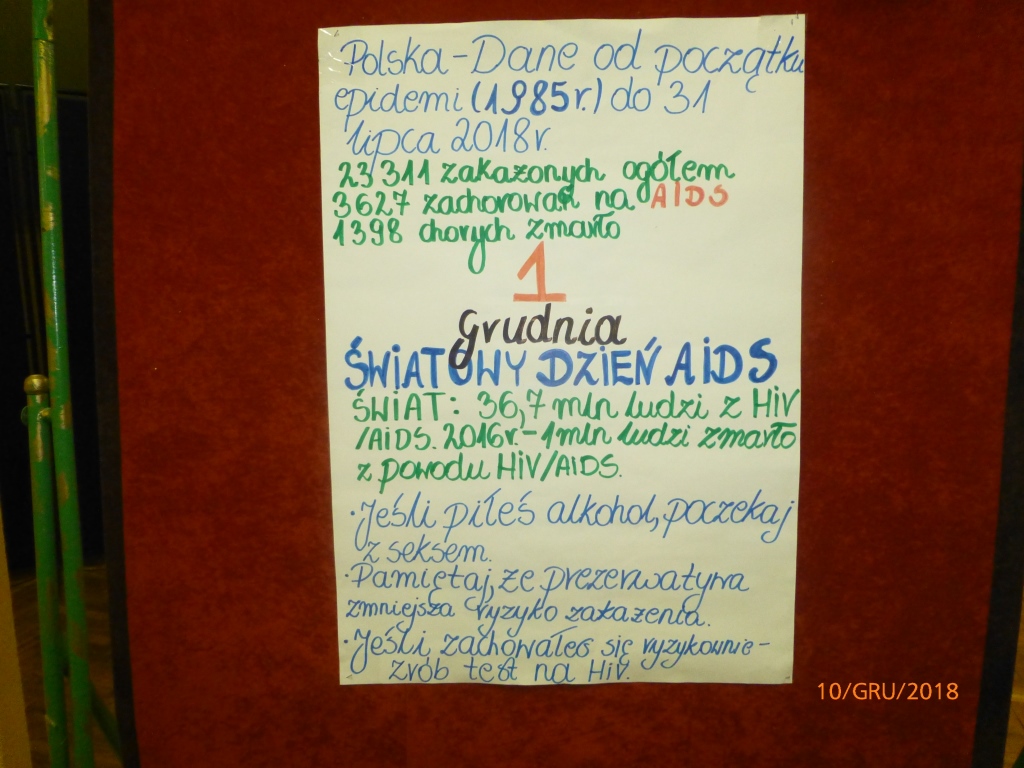 Polska - Dane od początku
epidemi (1985r.) do 31
lipca 2018r.
23 311 zakażonych ogółem
3627 zachorowań na AIDS
1398 chorych zmarło
1
grudnia
ŚWIATOWY DZIEŃ AIDS
ŚWIAT: 36,7 mln ludzi z HIV
/AIDS. 2016r. - 1 mln ludzi zmarło
z powodu HIV/AIDS.
· Jeśli piłeś alkohol, poczekaj
z seksem.
· Pamiętaj, że prezerwatywa
zmniejsza ryzyko zakażenia.
· Jeśli zachowałeś się ryzykownie -
zrób test na HiV.
10/GRU/2018